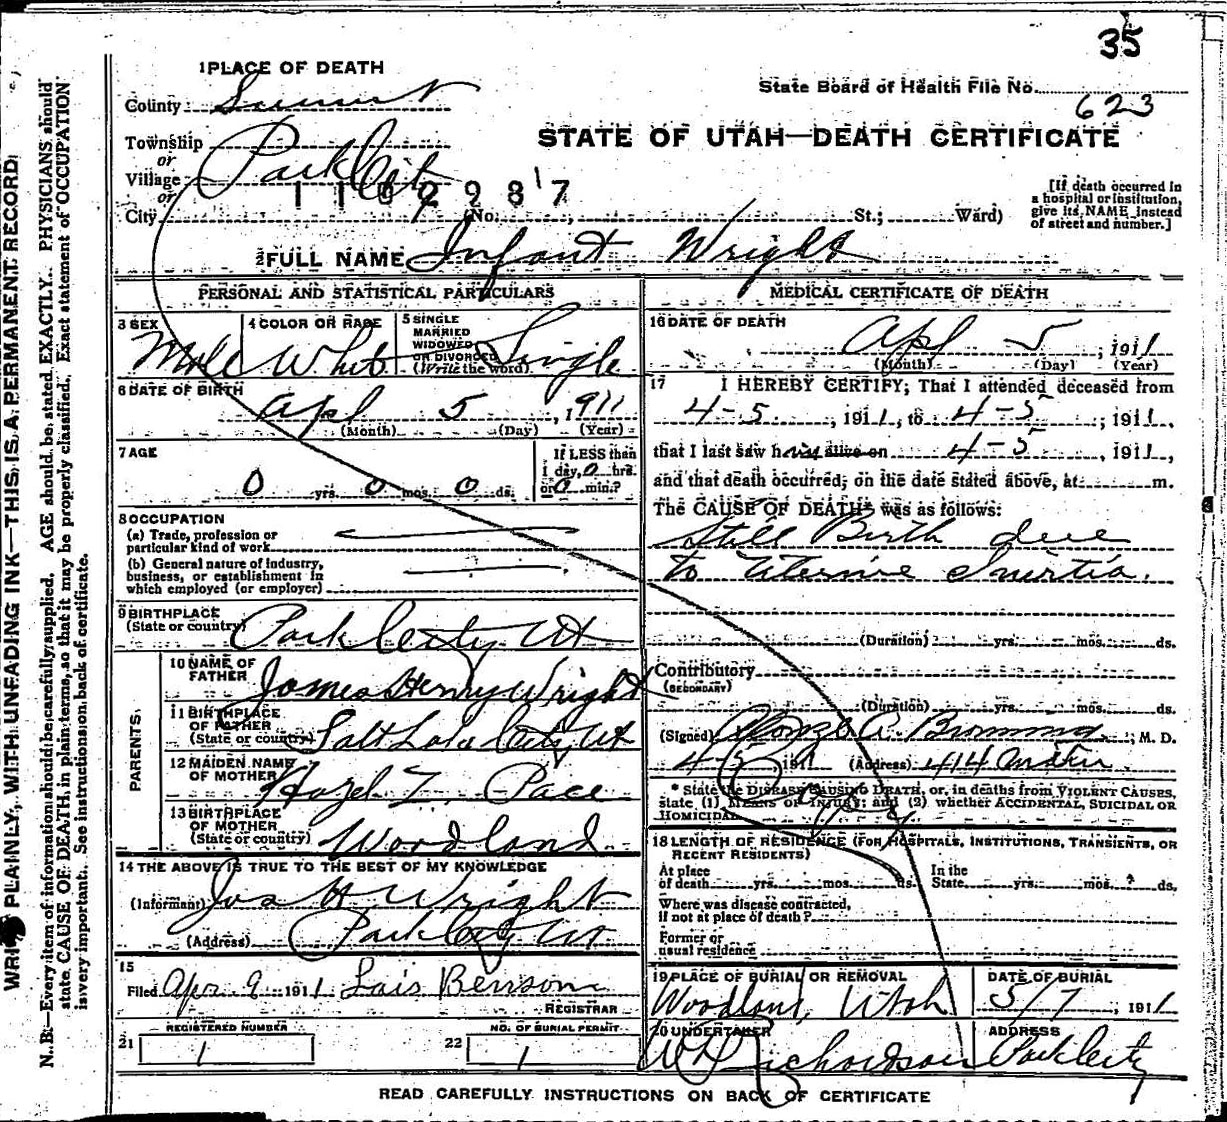 35
1 PLACE OF DEATH
County Summit
State Board of Health File No.
623
Township
or
Village Park City
or
City (No. St.; Ward)
1102987
STATE OF UTAH—DEATH CERTIFICATE
[If death occurred in
a hospital or institution,
give its NAME instead
of street and number.]
2 FULL NAME Infant Wright
PERSONAL AND STATISTICAL PARTICULARS
3 SEX
Male
4 COLOR OR RACE
White
5 SINGLE
MARRIED
WIDOWED
OR DIVORCED
(Write the word)
Single
6 DATE OF BIRTH
Apl 5, 1911
(Month) (Day) (Year)
7 AGE
0 yrs. 0 mos. 0 ds.
If LESS than
1 day, 0 hrs.
or 0 min.?
8 OCCUPATION
(a) Trade, profession or
particular kind of work
(b) General nature of industry,
business, or establishment in
which employed (or employer)
9 BIRTHPLACE
(State or country)
Park City Ut
PARENTS
10 NAME OF
FATHER
James Henry Wright
11 BIRTHPLACE
OF FATHER
(State or country)
Salt Lake City Ut
12 MAIDEN NAME
OF MOTHER
Hazel Z. Pace
13 BIRTHPLACE
OF MOTHER
(State or country)
Woodland
14 THE ABOVE IS TRUE TO THE BEST OF MY KNOWLEDGE
(Informant) Jas H Wright
(Address) Park City Ut
15
Filed Apr. 9 1911 Lois Benson
REGISTRAR
REGISTERED NUMBER
21 1
NO. OF BURIAL PERMIT
22 1
MEDICAL CERTIFICATE OF DEATH
16 DATE OF DEATH
Apl 5, 1911
(Month) (Day) (Year)
17 I HEREBY CERTIFY; That I attended deceased from
4-5, 1911, to 4-5, 1911,
that I last saw h alive on 4-5, 1911,
and that death occurred; on the date stated above, at m.
The CAUSE OF DEATH* was as follows:
Still Birth due
to Uterine Inertia.
(Duration) yrs. mos. ds.
Contributory
(SECONDARY)
(Duration) yrs. mos. ds.
(Signed) A., M. D.
4-5 1911 (Address) 414
* State the DISEASE CAUSING DEATH, or, in deaths from VIOLENT CAUSES,
state (1) MEANS OF INJURY; and (2) whether ACCIDENTAL, SUICIDAL OR
HOMICIDAL
18 LENGTH OF RESIDENCE (FOR HOSPITALS, INSTITUTIONS, TRANSIENTS, OR
RECENT RESIDENTS)
At place
of death yrs. mos. ds.
In the
State yrs. mos. ds.
Where was disease contracted,
if not at place of death?
Former or
usual residence
19 PLACE OF BURIAL OR REMOVAL
Woodland, Utah
DATE OF BURIAL
5/7, 1911
20 UNDERTAKER
W H Richardson
ADDRESS
Park City
READ CAREFULLY INSTRUCTIONS ON BACK OF CERTIFICATE
WRITE PLAINLY, WITH UNFADING INK—THIS IS A PERMANENT RECORD
N. B.—Every item of information should be carefully supplied. AGE should be stated EXACTLY. PHYSICIANS should
state CAUSE OF DEATH in plain terms, so that it may be properly classified. Exact statement of OCCUPATION
is very important. See instructions on back of certificate.